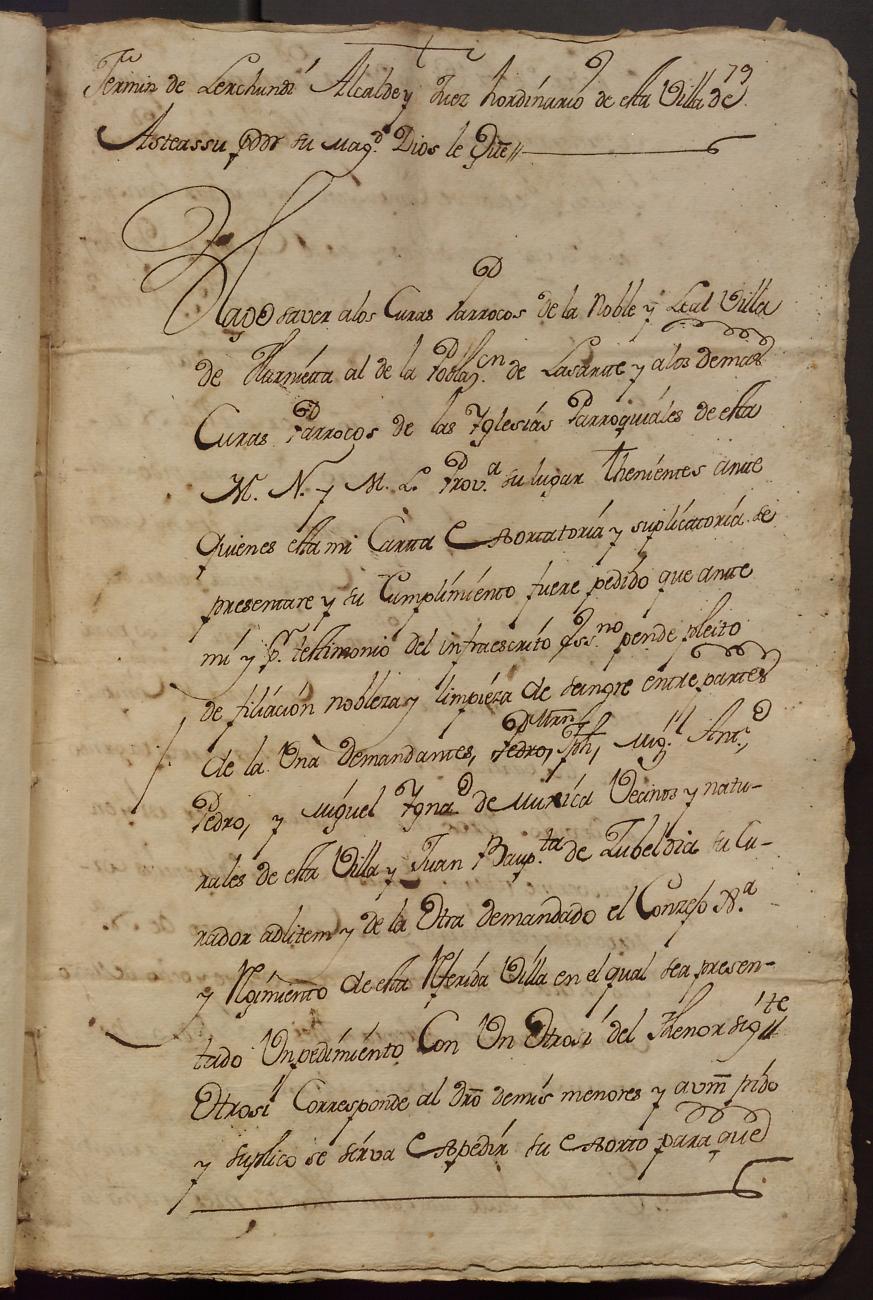 79
Fermin de Lerchundi Alcalde y Juez hordinario de esta Villa de
Asteassu por su Magd. Dios le Gue
Hago saver a los Curas Parrocos de la Noble y Leal Villa
de Hurnieta al de la Poblazcn. de Lasarte y a los demas
Curas Parrocos de las Yglesias Parroquiales de esta
M. N. y M. L. Prova. su lugar thenientes ante
quienes esta mi Cartta Esortatoria y suplicatoria se
presentare y su Cumplimiento fuere pedido que ante
mi y pr. testimonio del infraescrito Essno. pende pleito
de filiacion nobleza y limpieza de sangre entre partes
de la Una demandantes, Pedro, Mrn Jph, Migl. Anto,
Pedro, y Miguel Ygnao de Munita Vecinos y natu-
rales de esta Villa y Juan Baupta. de Zubeldia su Cu-
rador adlitem y de la Otra demandado el Conzejo Na.
y Rejimiento de esta Referida Villa en el qual sea presen-
tado Un pedimiento Con Un Otrosi del thenor sigte
Otrosi Corresponde al dro demis menores y avm pido
y suplico se sirva Espedir su Esorto para que